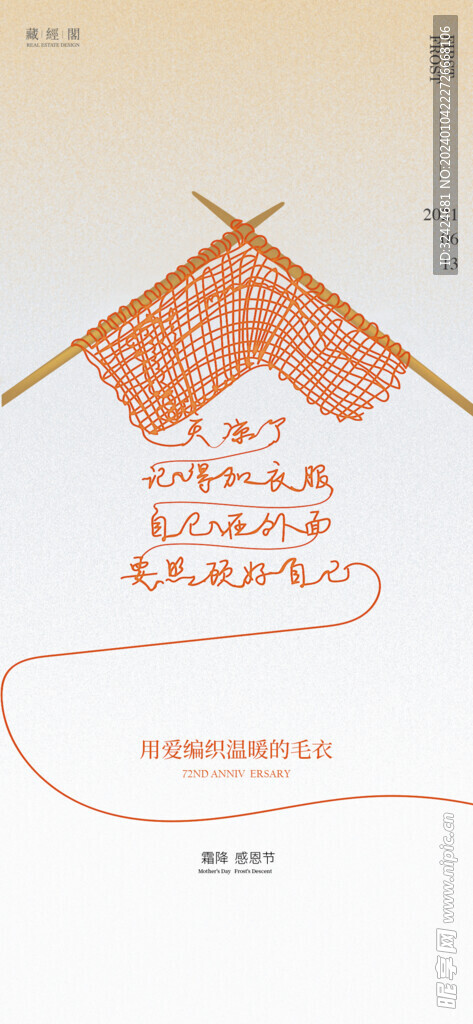 藏 | 經 | 閣
REAL ESTATE DESIGN
FROST
天凉了
记得加衣服
自己在外面
要照顾好自己
用爱编织温暖的毛衣
72ND ANNIV ERSARY
霜降 感恩节
Mother's Day Frost's Descent
ID:32424681 NO:20240104222726668106
昵享网 www.nipic.cn